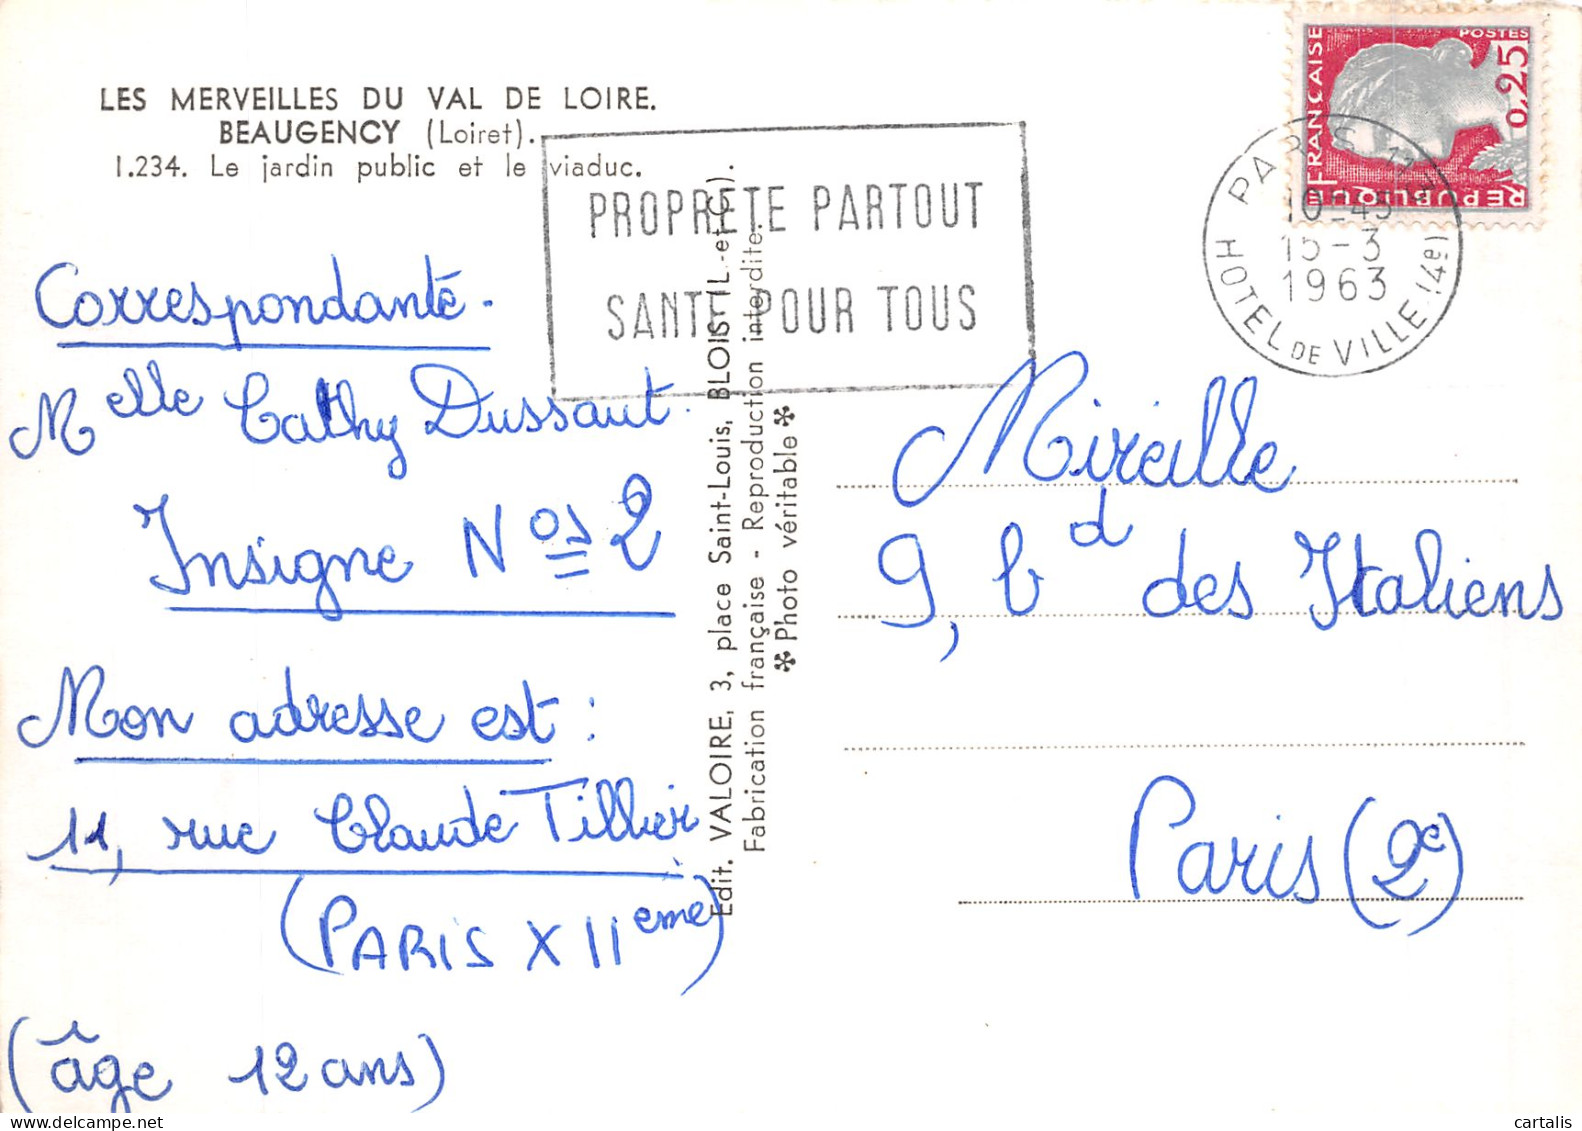 LES MERVEILLES DU VAL DE LOIRE.
BEAUGENCY (Loiret).
1.234. Le jardin public et le viaduc.
PROPRETE PARTOUT
SANTE POUR TOUS
REPUBLIQUE FRANÇAISE
POSTES
0,25
PARIS
10-45
15-3
1963
HOTEL DE VILLE (4e)
Correspondante.
Melle Cathy Dussaut.
Insigne Nos 2
Mon adresse est :
11, rue Claude Tillier
(PARIS XIIeme)
(âge 12 ans)
Edit. VALOIRE, 3, place Saint-Louis, BLOIS (L.-et-C.).
Fabrication française - Reproduction interdite.
✻ Photo véritable ✻
Mireille
9, bd des Italiens
Paris (2e)
cartalis